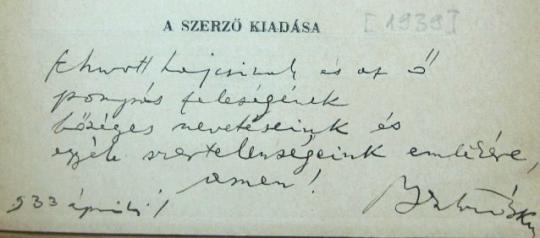 A SZERZŐ KIADÁSA [1939]
Lajcsinak és az ő
pompás feleségének
bőséges nevetéseink és
egyéb szertelenségeink emlékére,
amen!
933 április 1